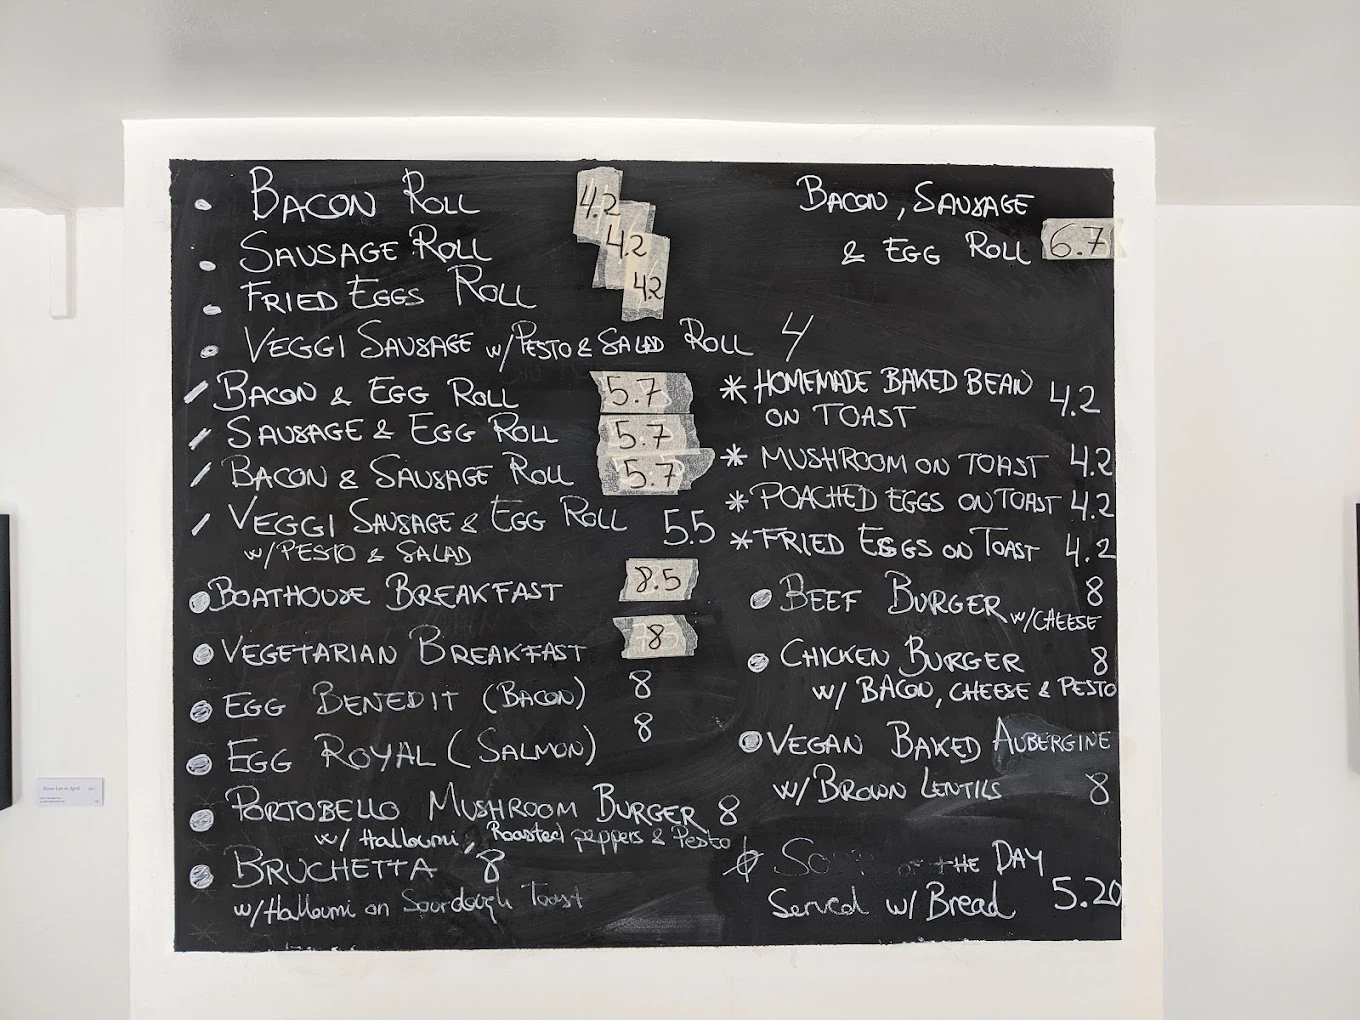 Bacon Roll 4.2
Sausage Roll 4.2
Fried Eggs Roll 4.2
Veggi Sausage w/Pesto & Salad Roll 4
Bacon & Egg Roll 5.7
Sausage & Egg Roll 5.7
Bacon & Sausage Roll 5.7
Veggi Sausage & Egg Roll 5.5
w/Pesto & Salad
Boathouse Breakfast 8.5
Vegetarian Breakfast 8
Egg Benedit (Bacon) 8
Egg Royal (Salmon) 8
Portobello Mushroom Burger 8
w/ Halloumi, Roasted peppers & Pesto
Bruchetta 8
w/Halloumi on Sourdough Toast
Bacon, Sausage
& Egg Roll 6.7
* Homemade Baked Bean 4.2
on Toast
* Mushroom on Toast 4.2
* Poached Eggs on Toast 4.2
* Fried Eggs on Toast 4.2
Beef Burger 8
w/Cheese
Chicken Burger 8
w/ Bacon, Cheese & Pesto
Vegan Baked Aubergine
w/ Brown Lentils 8
of the Day
Served w/ Bread 5.20